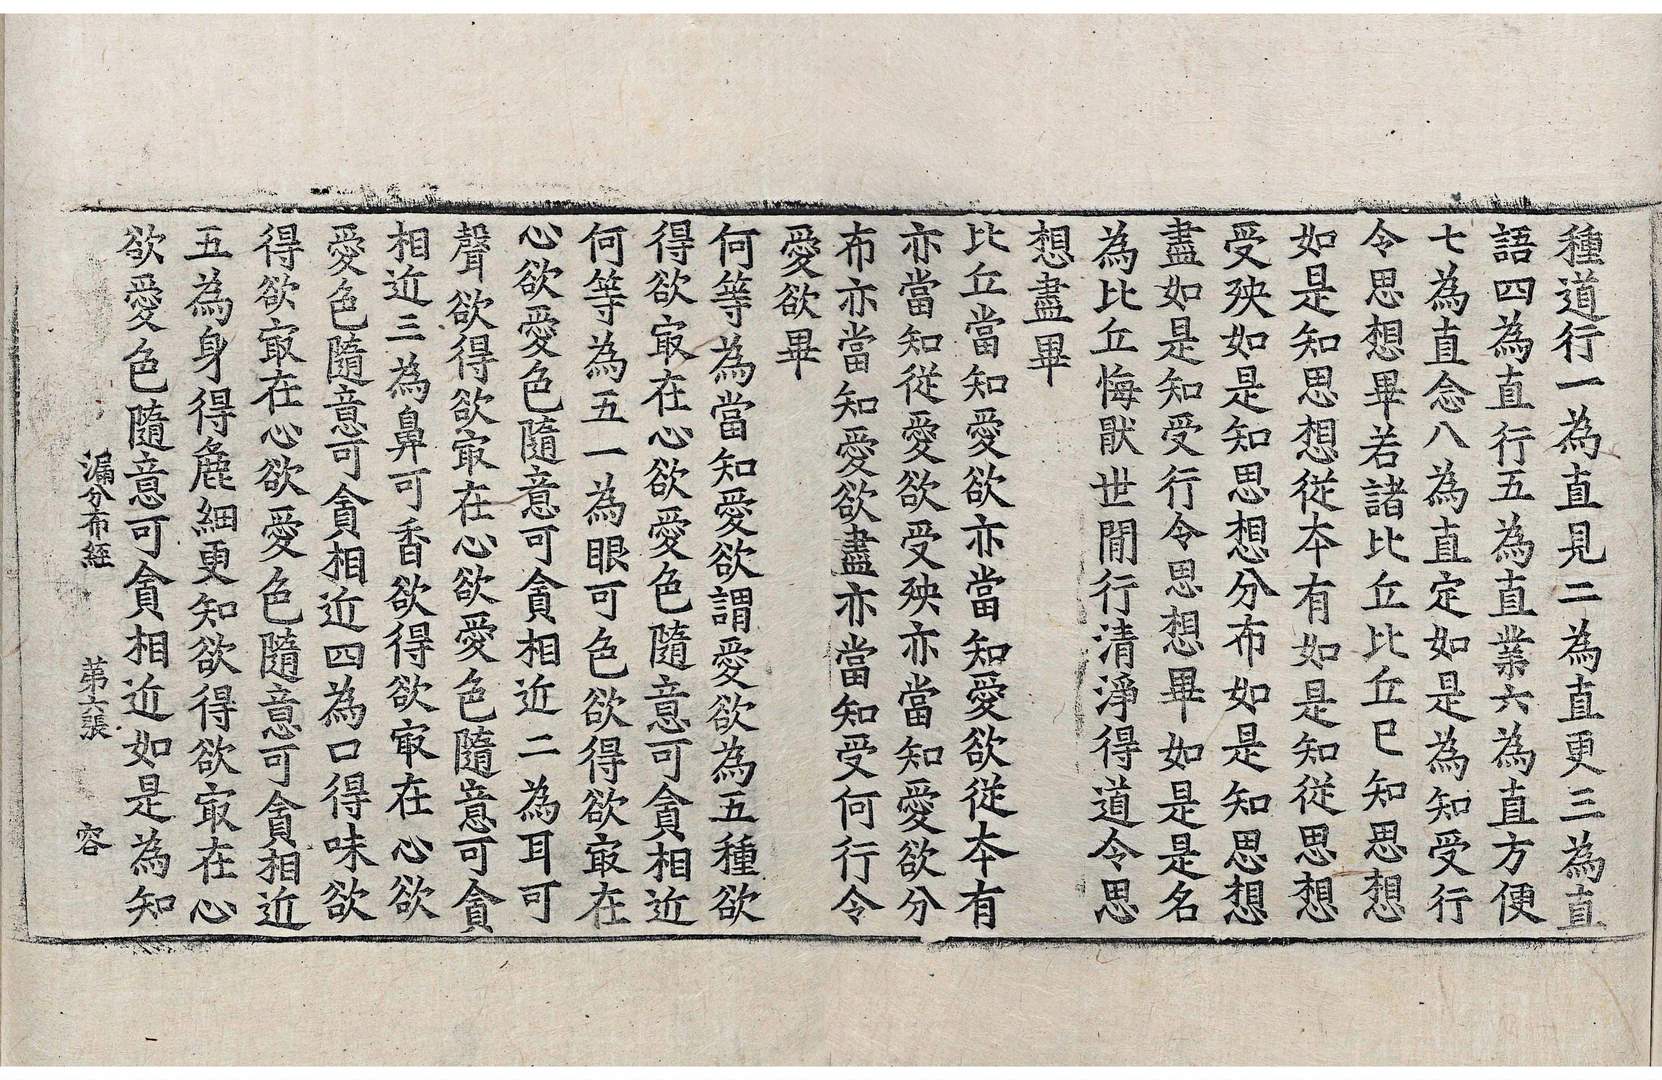 種道行一為直見二為直更三為直
語四為直行五為直業六為直方便
七為直念八為直定如是為知受行
令思想畢若諸比丘比丘已知思想
如是知思想従夲有如是知従思想
受殃如是知思想分布如是知思想
盡如是知受行令思想畢如是是名
為比丘悔猒世間行清淨得道令思
想盡畢
比丘當知愛欲亦當知愛欲従夲有
亦當知従愛欲受殃亦當知愛欲分
布亦當知愛欲盡亦當知受何行令
愛欲畢
何等為當知愛欲謂愛欲為五種欲
得欲㝡在心欲愛色隨意可貪相近
何等為五一為眼可色欲得欲㝡在
心欲愛色隨意可貪相近二為耳可
聲欲得欲㝡在心欲愛色隨意可貪
相近三為鼻可香欲得欲㝡在心欲
愛色隨意可貪相近四為口得味欲
得欲㝡在心欲愛色隨意可貪相近
五為身得麁細更知欲得欲㝡在心
欲愛色隨意可貪相近如是為知
漏分布經 第六張 容